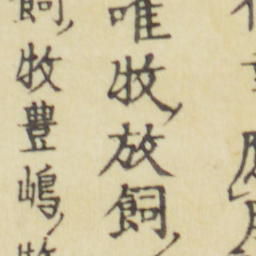 唯牧放飼、
飼、牧豊嶋、牧